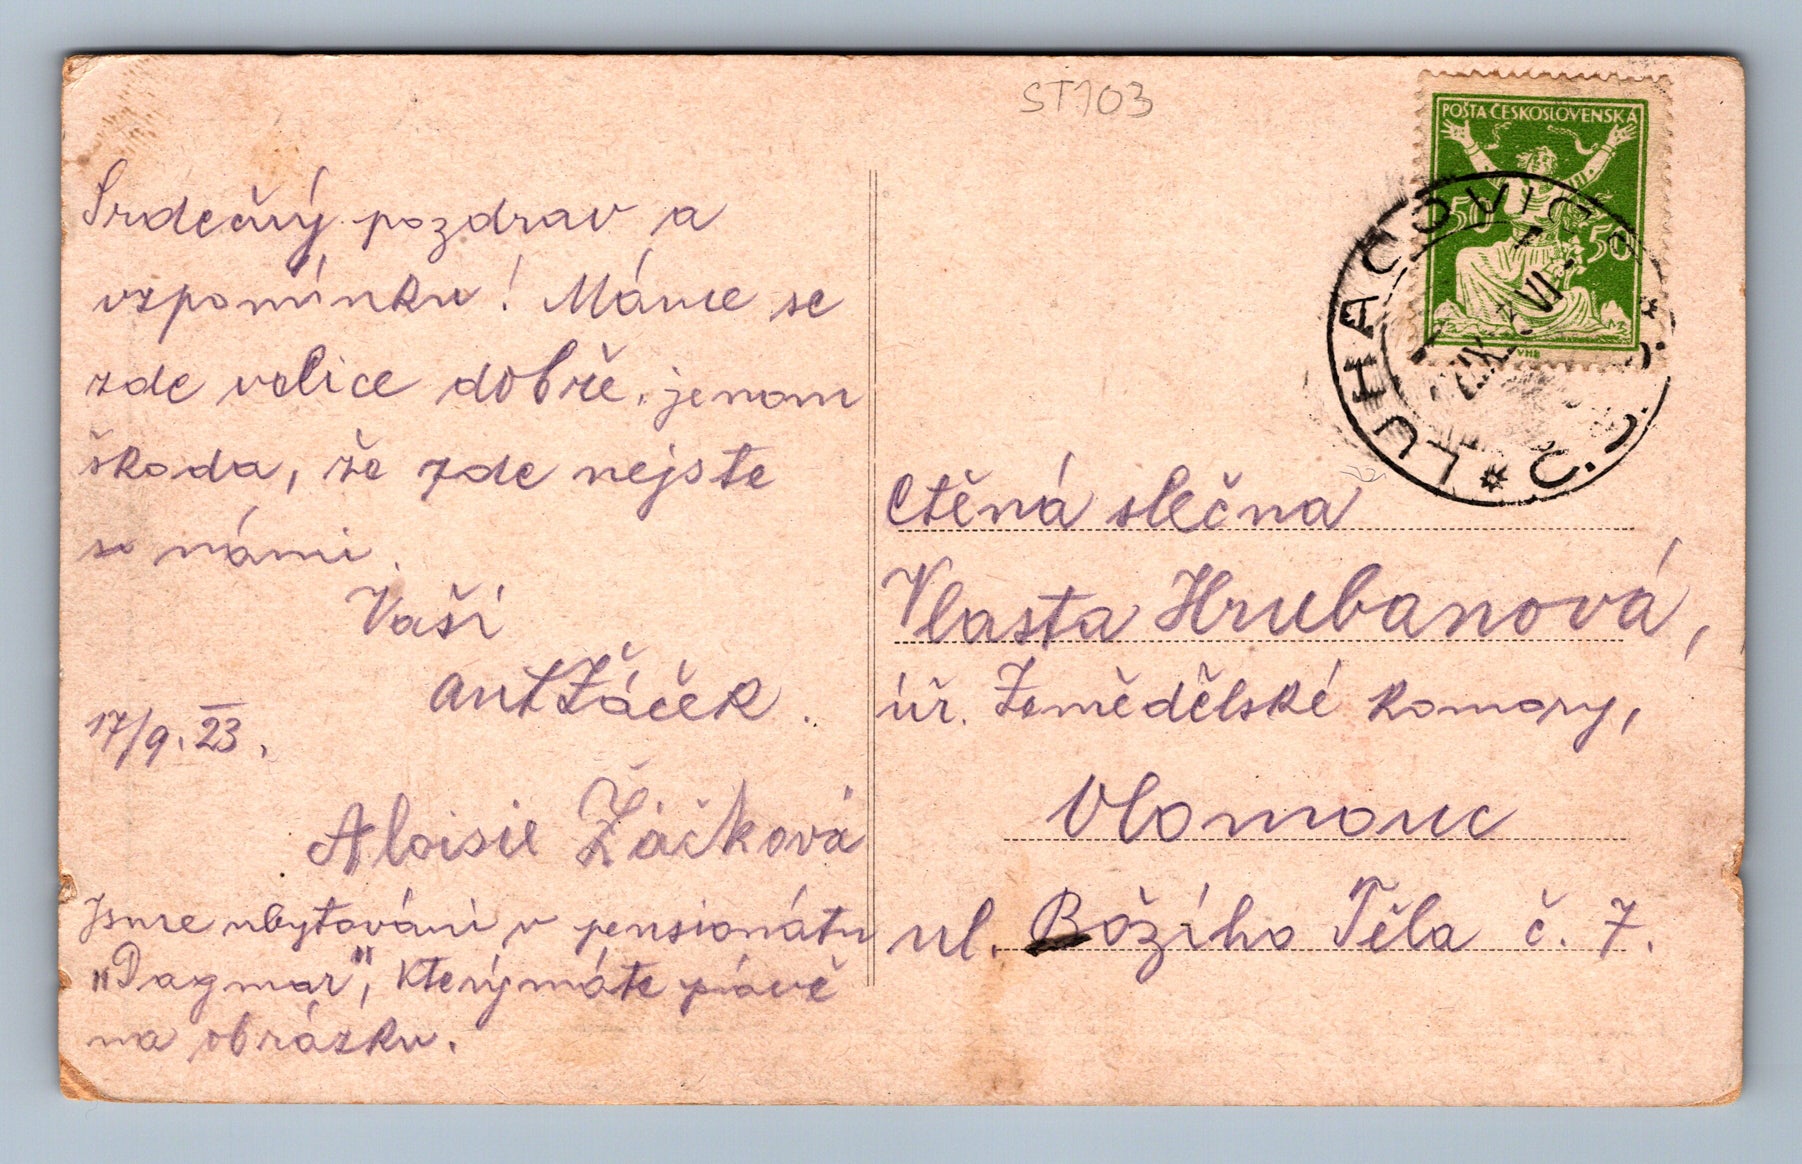 ST103
POŠTA ČESKOSLOVENSKÁ
50 50
VHB
*LUHAČOVICE*
Č.S.
Srdečný pozdrav a
vzpomínku! Máme se
zde velice dobře, jenom
škoda, že zde nejste
s námi.
Vaši
Ant Žáček.
17/9. 23.
Aloisie Žáčková
Jsme ubytováni v pensionátu
„Dagmar", který máte právě
na obrázku.
Ctěná slečna
Vlasta Hrubanová,
úř. Zemědělské komory,
Olomouc
ul. Božího Těla č. 7.